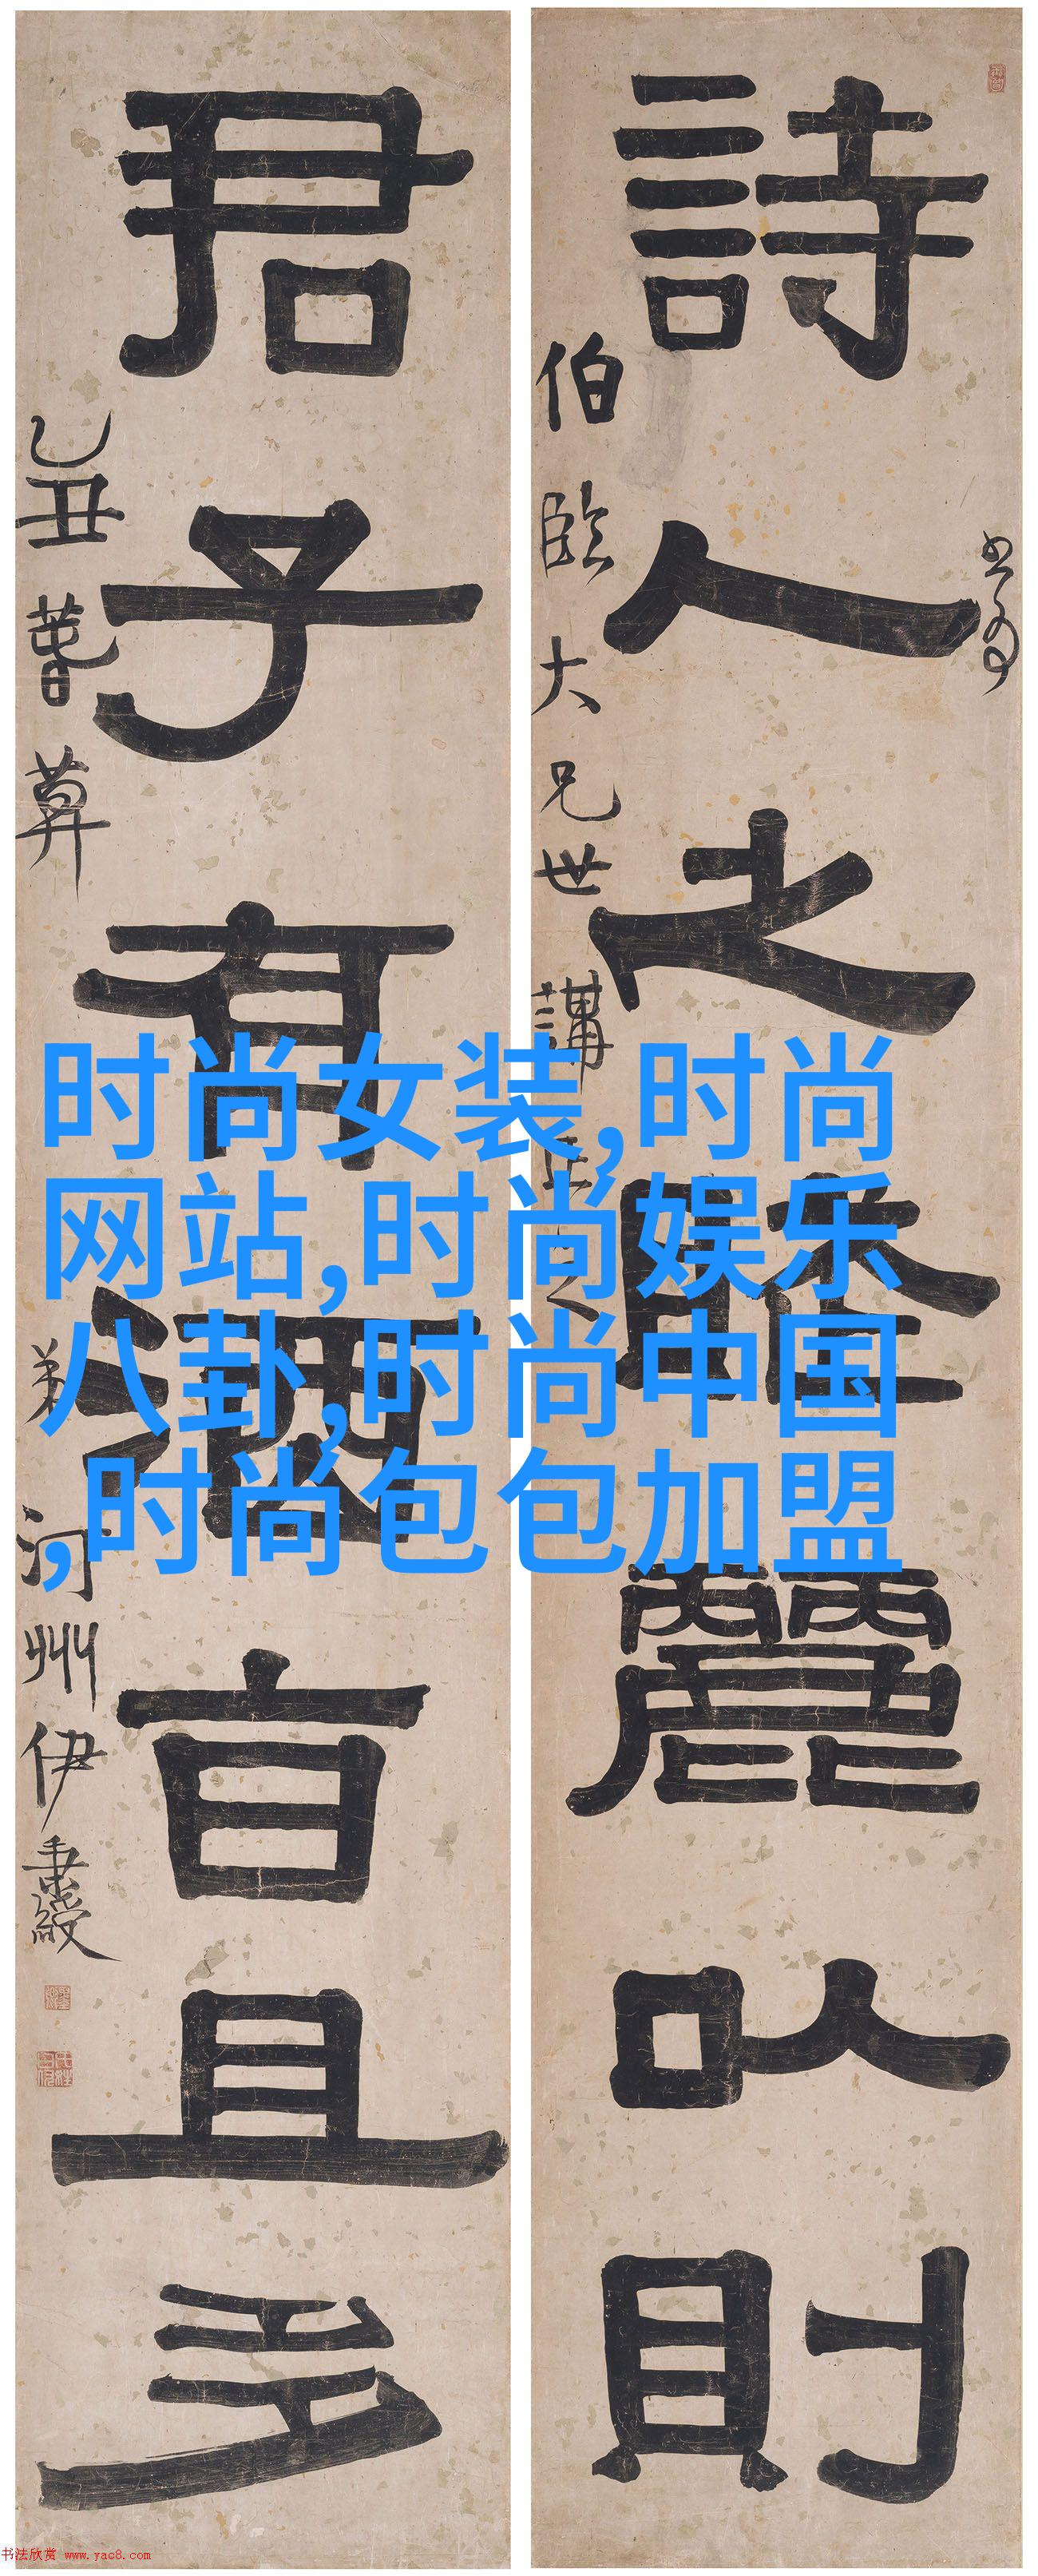 詩人之麗以則
伯臨大兄世講正之
君子有酒旨且多
乙丑
汀州伊秉綬
时尚女装,时尚
网站,时尚娱乐
八卦,时尚中国
,时尚包包加盟
书法欣赏 www.yac8.com